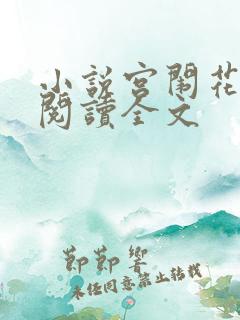 小説宮闈花
閱讀全文
節節響
未经同意禁止转载